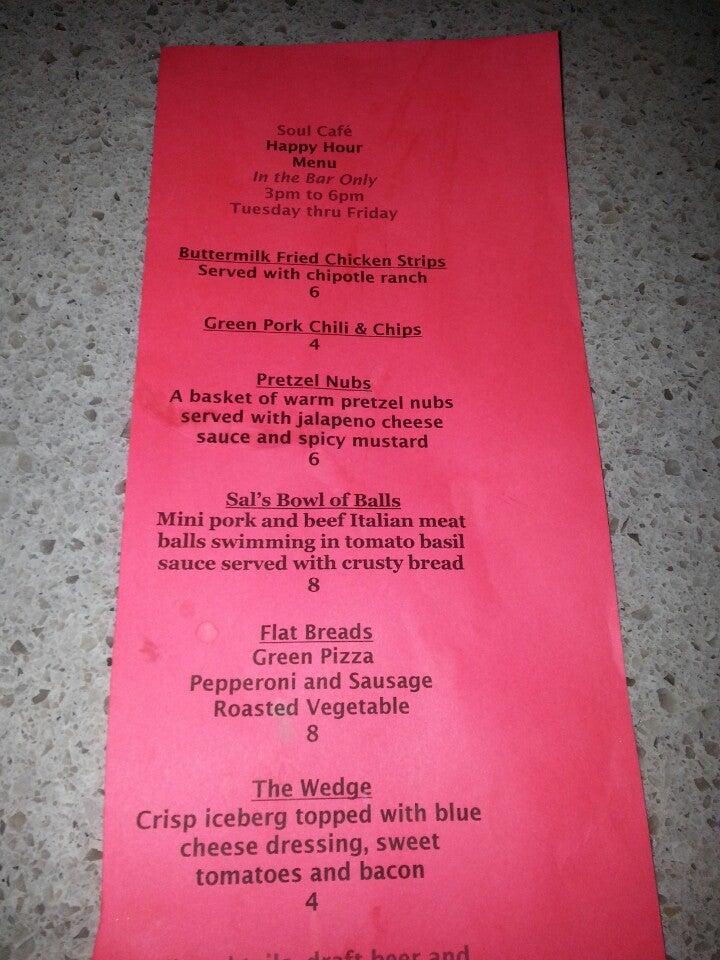 Soul Café
Happy Hour
Menu
In the Bar Only
3pm to 6pm
Tuesday thru Friday
Buttermilk Fried Chicken Strips
Served with chipotle ranch
6
Green Pork Chili & Chips
4
Pretzel Nubs
A basket of warm pretzel nubs
served with jalapeno cheese
sauce and spicy mustard
6
Sal's Bowl of Balls
Mini pork and beef Italian meat
balls swimming in tomato basil
sauce served with crusty bread
8
Flat Breads
Green Pizza
Pepperoni and Sausage
Roasted Vegetable
8
The Wedge
Crisp iceberg topped with blue
cheese dressing, sweet
tomatoes and bacon
4
draft beer and